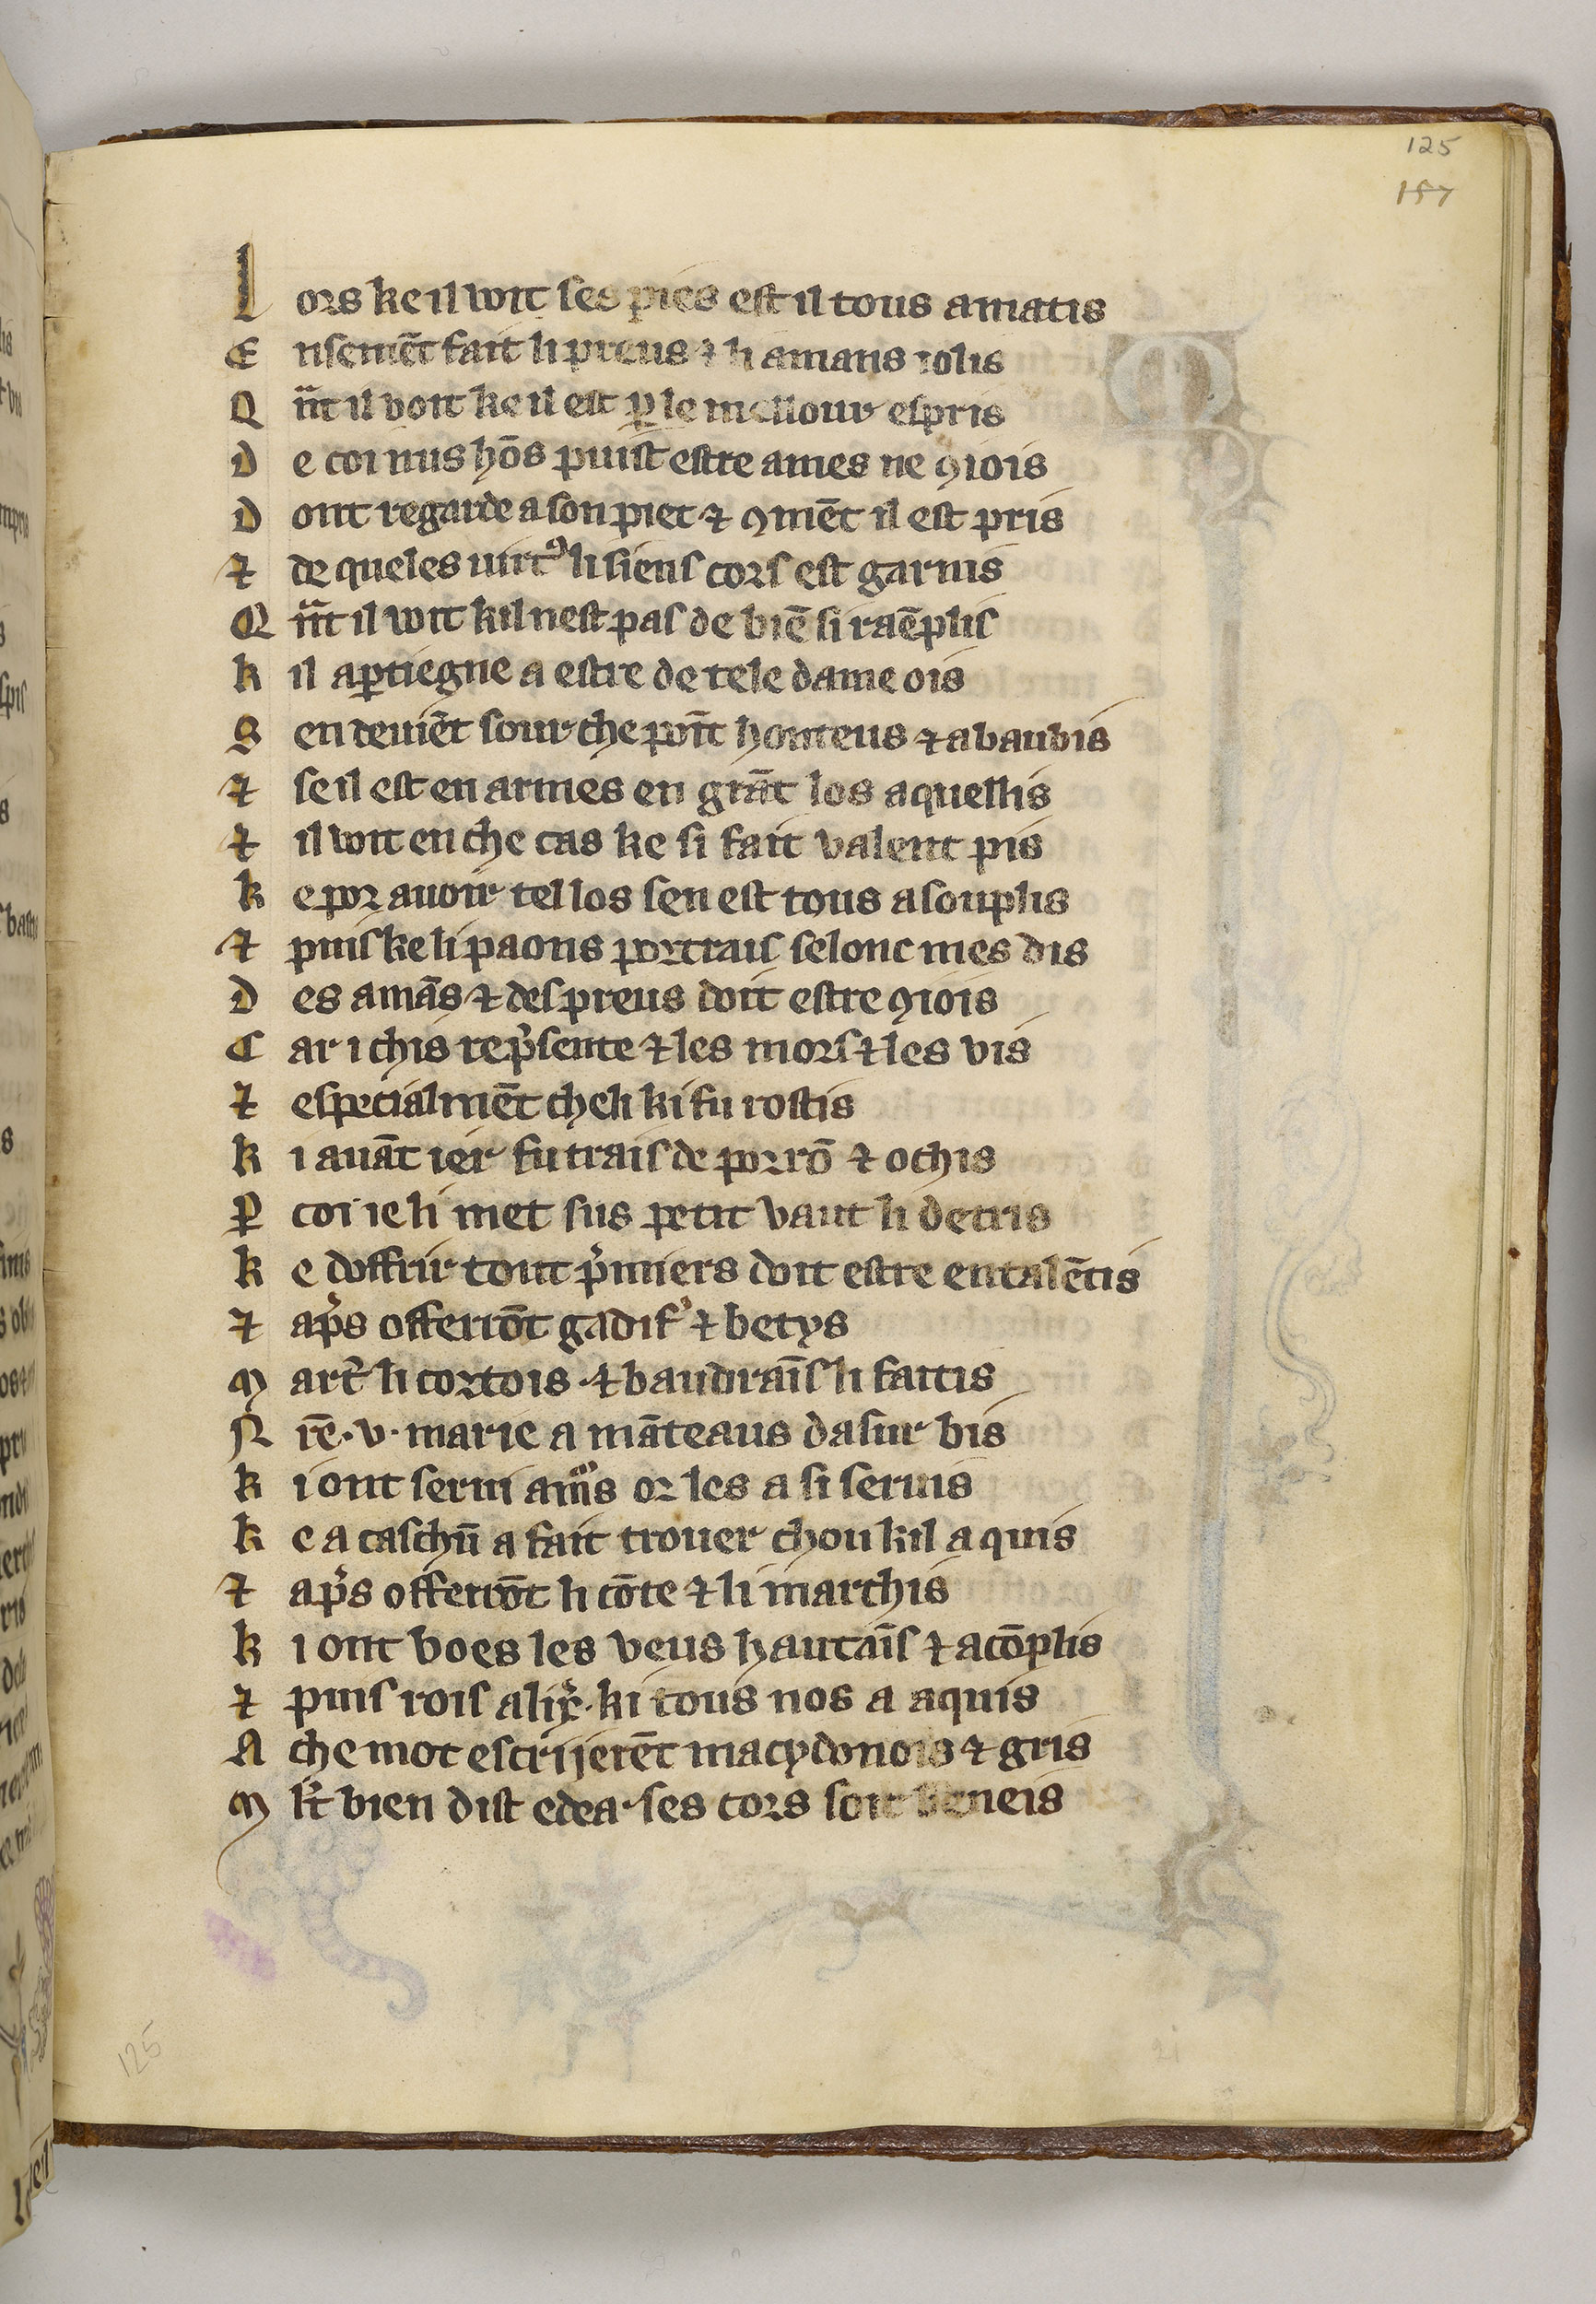 125
157
Lors ke il voit ses pies est il tous amatis
Ensemẽt fait li preus ⁊ li amans iolis
Qñt il voit ke il est ꝑ le mellour espris
De coi nus hõs puist estre ames ne ꝯiois
Dont regarde a son piet ⁊ ꝯmẽt il est pris
⁊ de queles uirtꝰ li siens cors est garnis
Qñt il voit kil nest pas de biẽ si raẽplis
kil aꝑtiegne a estre de tele dame ois
Sen deuiẽt sour che poĩt honteus ⁊ abaubis
⁊ se il est en armes en grãt los aquellis
⁊ il voit en che cas ke si fait valent pis
ke por auoir tel los sen est tous asouplis
⁊ puis ke li paons portrais selonc mes dis
Des amãs ⁊ des preus doit estre ꝯiois
Car ichis rep̉sente ⁊ les mors ⁊ les vis
⁊ especialmẽt cheli ki fu rostis
ki auãt ier fu trais de porrõ ⁊ ochis
ꝑ coi ie li met sus petit vaut li detris
ke doffrir tout p̉miers doit estre entalẽtis
⁊ ap̉s offerrõt gadif̉ ⁊ betys
Mart̉ li cortois ⁊ baudraĩs li faitis
Nrẽ .v. marie a mãteaus dasur bis
ki ont serui am̊s or les a si seruis
ke a caschũ a fait trouer chou kil a quis
⁊ ap̉s offerrõt li cõte ⁊ li marchis
ki ont voes les veus hautaĩs ⁊ acõplis
⁊ puis rois alix̉. ki tous nos a aquis
A che mot escrijerẽt macydonois ⁊ gris
Mlt̉ bien dist edea. ses cors soit beneis
125